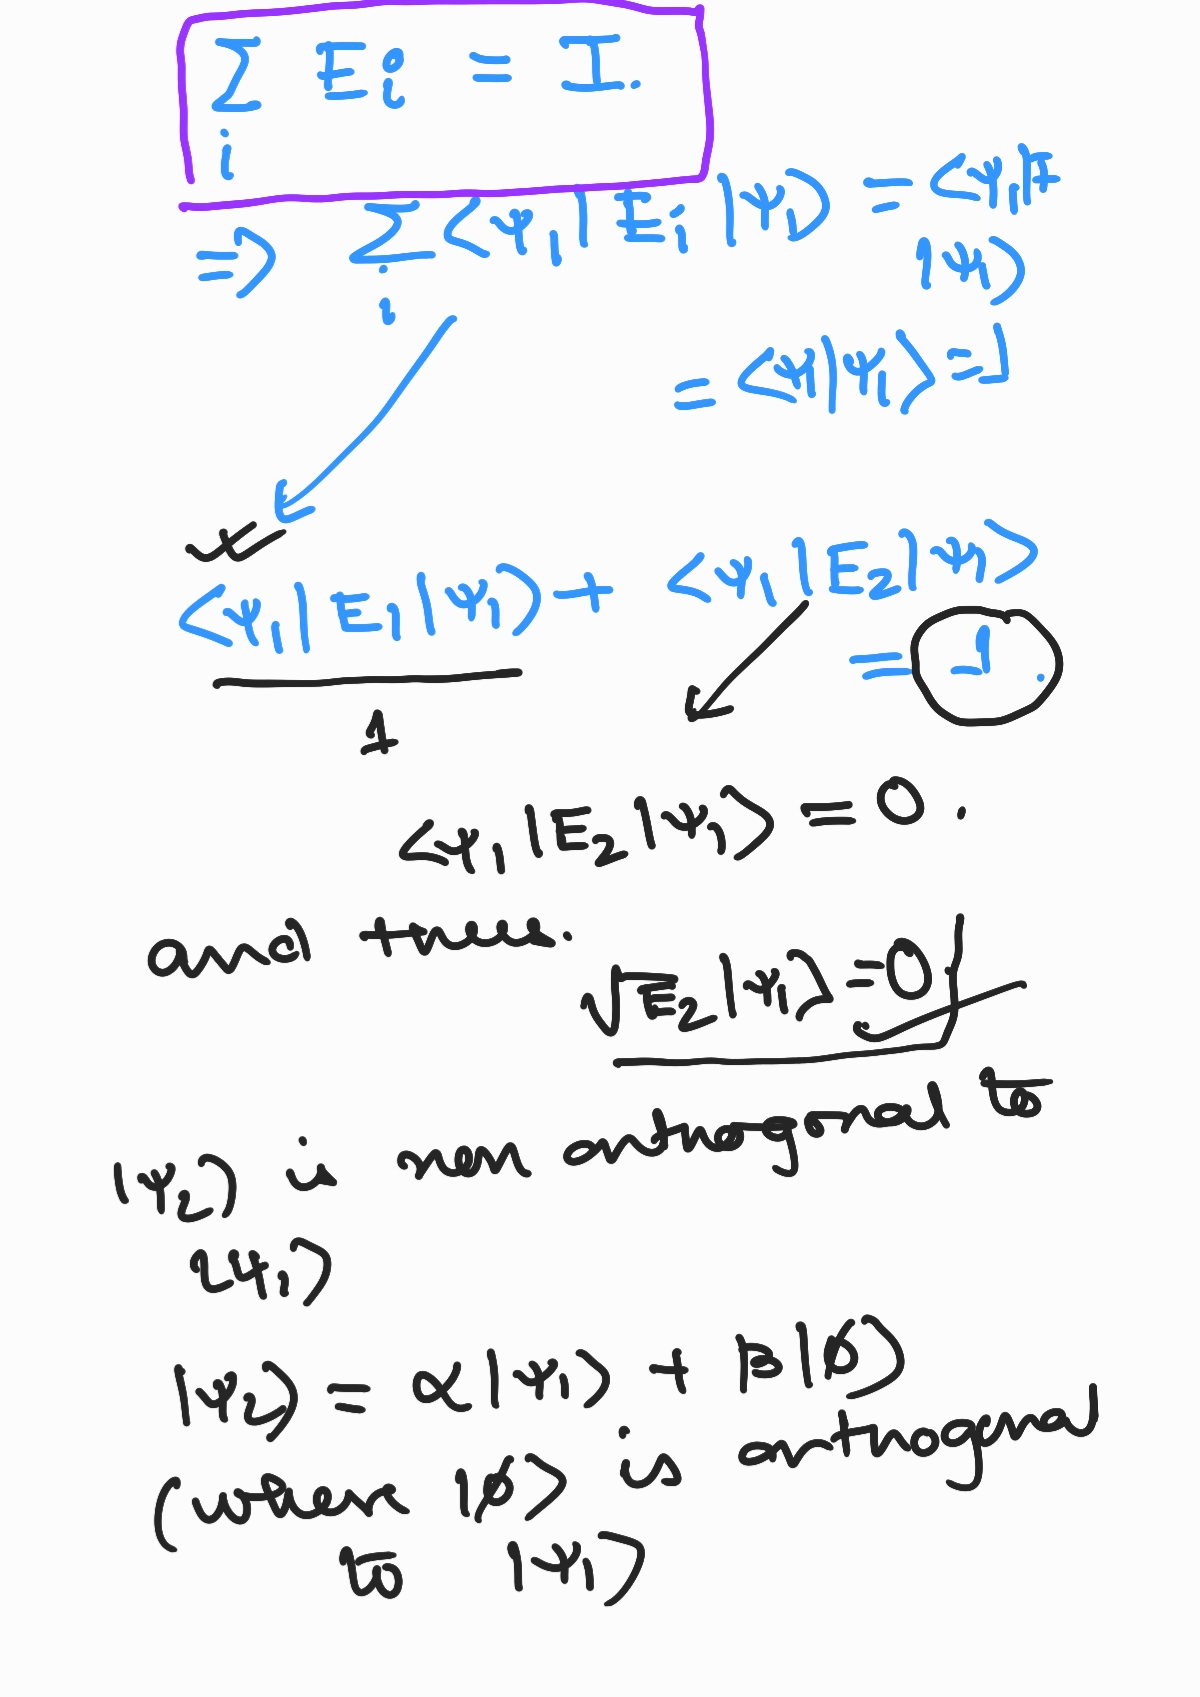 ∑ Ei = I.
i
⇒ ∑ ⟨ψ1| Ei |ψ1⟩ = ⟨ψ1|I
i
|ψ1⟩
= ⟨ψ1|ψ1⟩ = 1
⟨ψ1|E1|ψ1⟩ + ⟨ψ1|E2|ψ1⟩
= 1.
1
⟨ψ1|E2|ψ1⟩ = 0.
and thus.
√E2|ψ1⟩ = 0
|ψ2⟩ is non orthogonal to
|ψ1⟩
|ψ2⟩ = α|ψ1⟩ + β|ø⟩
(where |ø⟩ is orthogonal
to |ψ1⟩